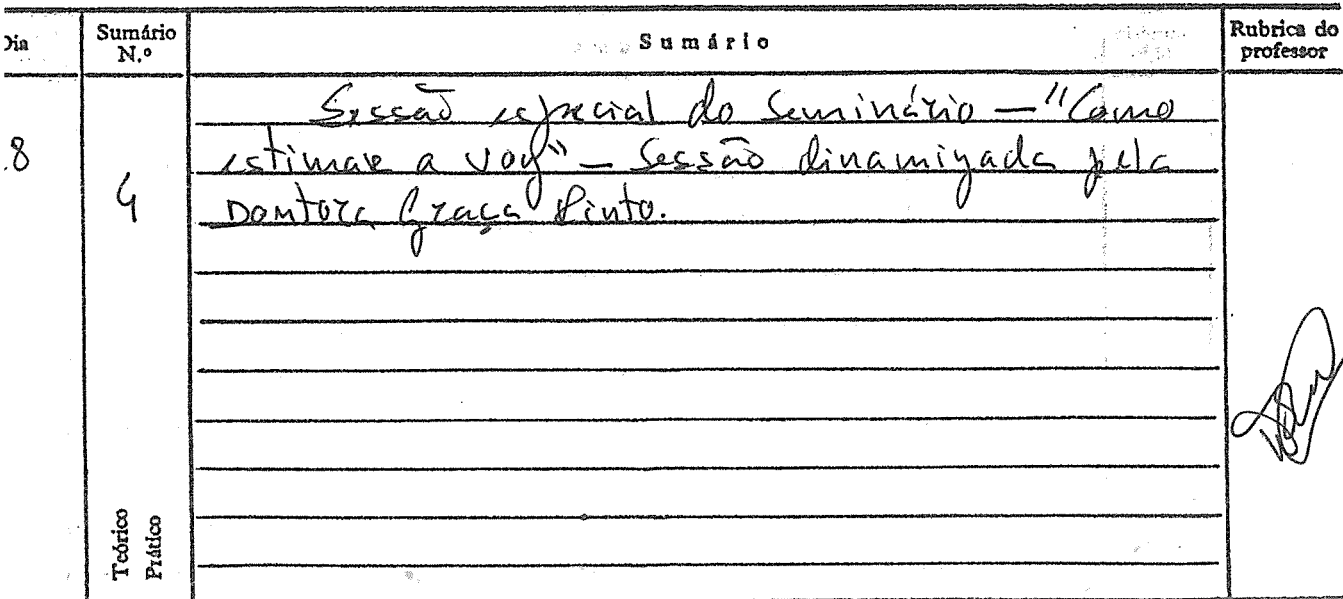 Dia
Sumário N.º
Sumário
Rubrica do professor
.8
4
Sessão especial do Seminário — "Como
estimar a voz" — Sessão dinamizada pela
Doutora Graça Pinto.
Teórico
Prático